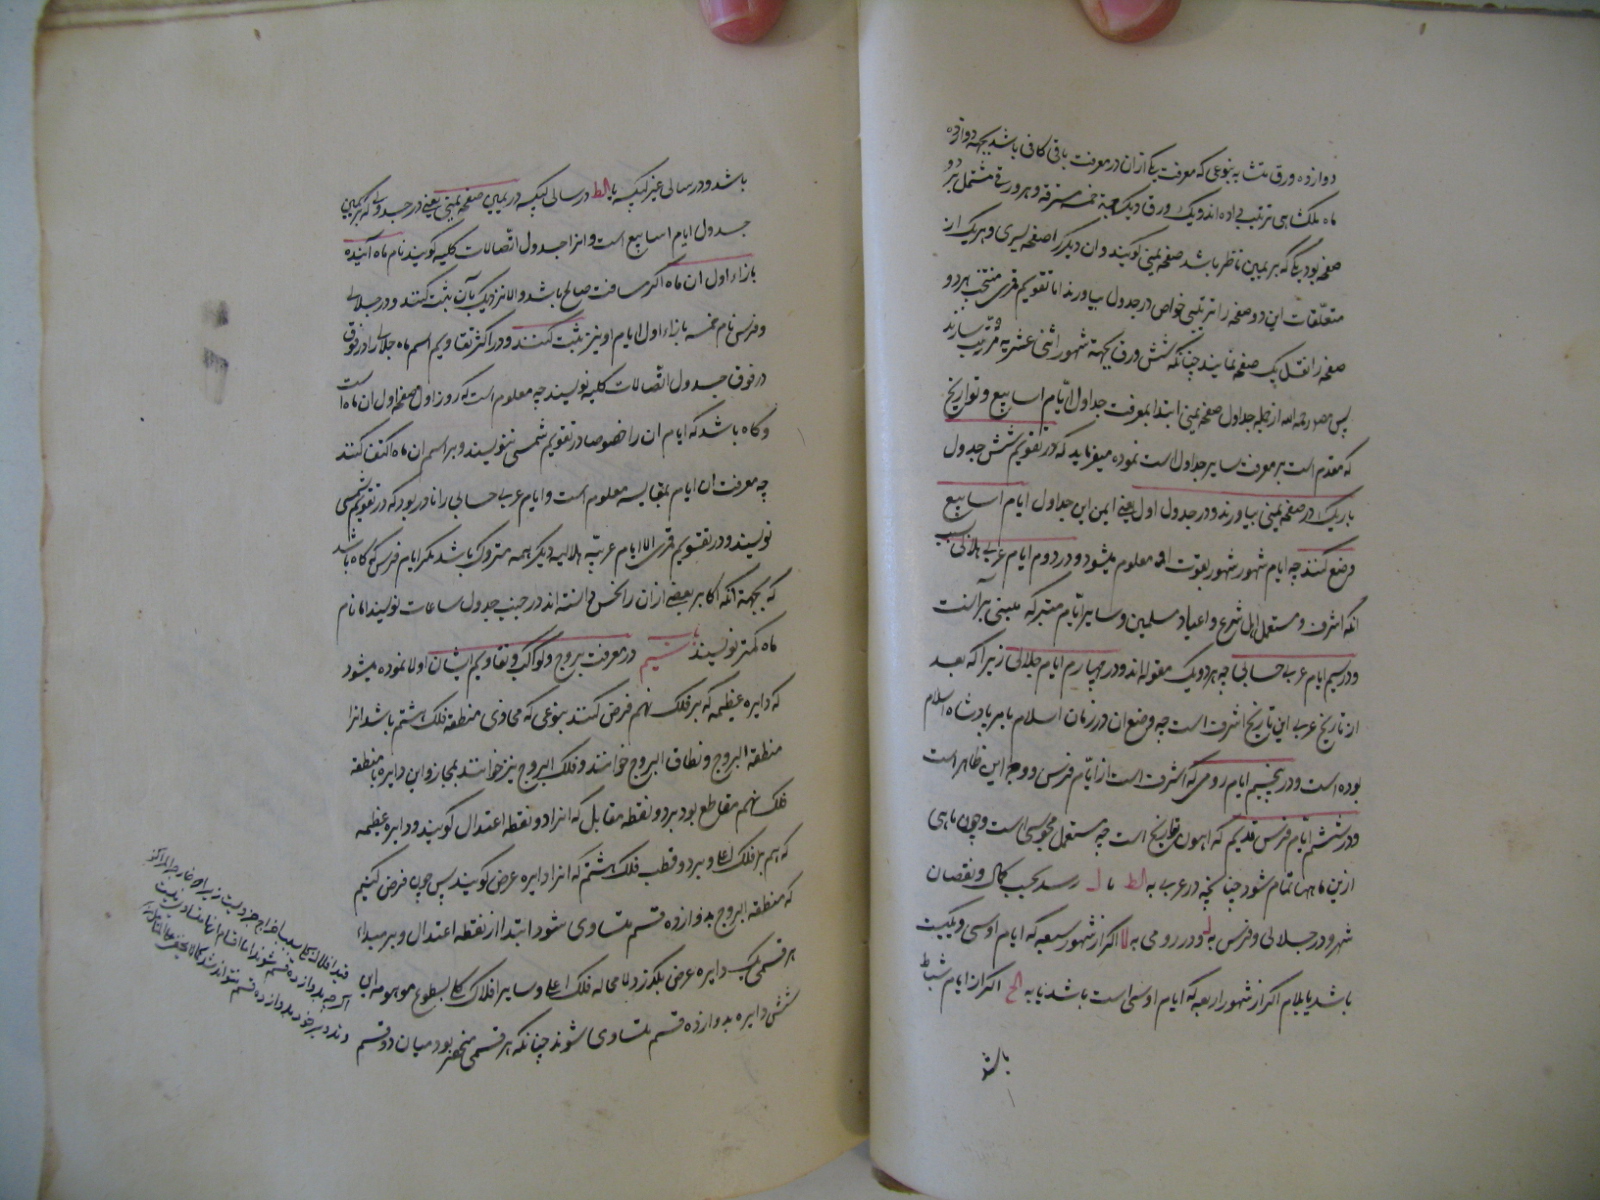 دوازده ورق متشابه بنوعی که معرفت یکی از ان در معرفت باقی کافی باشد بجهة دوازده
ماه ملک شاهی ترتیب داده اند و یک ورق دیگر بجهة خمسه مسترقه و هر ورقی مشتمل بر دو
صفحه بود یکی که بر یمین ناظر باشد صفحه یمنی کویند و ان دیگر را صفحه یسری و هر یک از
متعلقات این دو صفحه را بترتیبی خواص در جدول بیاورند اما تقویم قمری منتخب هر دو
صفحه را نقل یک صفحه نمایند چنانکه شش ورق بجهة شهور اثنی عشریه مرتب سازند
پس مصنف رحمه الله از جمله جداول صفحه یمنی ابتدا بمعرفت جداول ایام اسابیع و تواریخ
که مقدم است بر معرفت سایر جداول است نموده میفرماید که در تقویم شش جدول
باریک در صفحه یمنی بیاورند و در جدول اول یعنی ایمن این جداول ایام اسابیع
وضع کنند چه ایام شهور بقوت او معلوم میشود و در دوم ایام عربی هلالی
انکه اشرف و مستعمل اهل شرع و اعیاد مسلمین و سایر ایام متبرکه مبنی بر آنست
و در سیم ایام عربی حسابی چه هر دو یک مقوله اند و در چهارم ایام جلالی زیرا که بعد
از تاریخ عربی این تاریخ اشرف است چه وضع ان در زمان اسلام بامر پادشاه اسلام
بوده است و در پنجم ایام رومی که اشرف است از ایام فرس و وجه این ظاهر است
و در ششم ایام فرس قدیم که اهون تواریخ است چه مستعمل مجوسی است و چون ماهی
ازین ماهها تمام شود چنانچه در عربی به الط یا ل رسد بحسب کمال و نقصان
شهر و در جلالی و فرس به ل و در رومی به لا اکر از شهور سبعه که ایام او سی و یکیست
باشد یا بلام اکر از شهور اربعه که ایام او سی است باشد یا به الح اکر از ایام شباط
باشد
باشد و در سالی غیر کبیسه یا الط در سالی کبیسه در یمین صفحه یمنی یعنی در جدولی که بر یمین
جدول ایام اسابیع است و انرا جدول اتصالات کلیه کویند نام ماه آینده
بازاء اول ان ماه اکر مسافت صالح باشد و الا نزدیک بآن ثبت کنند و در جلالی
و فرس نام خمسه بازاء اول ایام او نیز ثبت کنند و در اکثر تقاویم اسم ماه جلالی را در فوق
در فوق جدول اتصالات کلیه نویسند چه معلوم است که روز اول صفحه اول ان ماه است
و کاه باشد که ایام ان را خصوصا در تقویم شمسی ننویسند و بر اسم ان ماه اکتفا کنند
چه معرفت ان ایام بمقایسه معلوم است و ایام عربی حسابی را نادر بود که در تقویم شمسی
نویسند و در تقویم قمری الا ایام عربیه هلالیه دیکر همه متروک باشد مکر ایام فرس که کاه باشد
که بجهة انکه اکابر بعضی از ان را نحس دانسته اند در جنب جدول ساعات نویسند اما نام
ماه کمتر نویسند باب سیم در معرفت بروج و کواکب و تقاویم ایشان اولا نموده میشود
که دایره عظیمه که بر فلک نهم فرض کنند بنوعی که محاذی منطقه فلک هشتم باشد انرا
منطقة البروج و نطاق البروج خوانند و فلک البروج نیز خوانند بمجاز و این دایره با منطقه
فلک نهم مقاطع بود بر دو نقطه مقابل که انرا دو نقطه اعتدال کویند و دایره عظیمه
که هم بر فلک اعلی و بر دو قطب فلک هشتم که انرا دایره عرض کویند پس چون فرض کنیم
که منطقة البروج بدوازده قسم متساوی شود ابتدا از نقطه اعتدال و بر مبداء
هر قسمی یک دایره عرض بکذرد لا محاله فلک اعلی و سایر افلاک کلی بسطوح موهومه این
شش دایره بدوازده قسم متساوی شوند چنانکه هر قسمی منحصر بود میان دو قسم
قید افلاک کلی بسبب اخراج جزویست زیرا که خارج المرکز
اکر چه بدوازده قسم شوند اما اقسام انها متساوی نیست
و تدویر خود بدوازده قسم نتواند شد